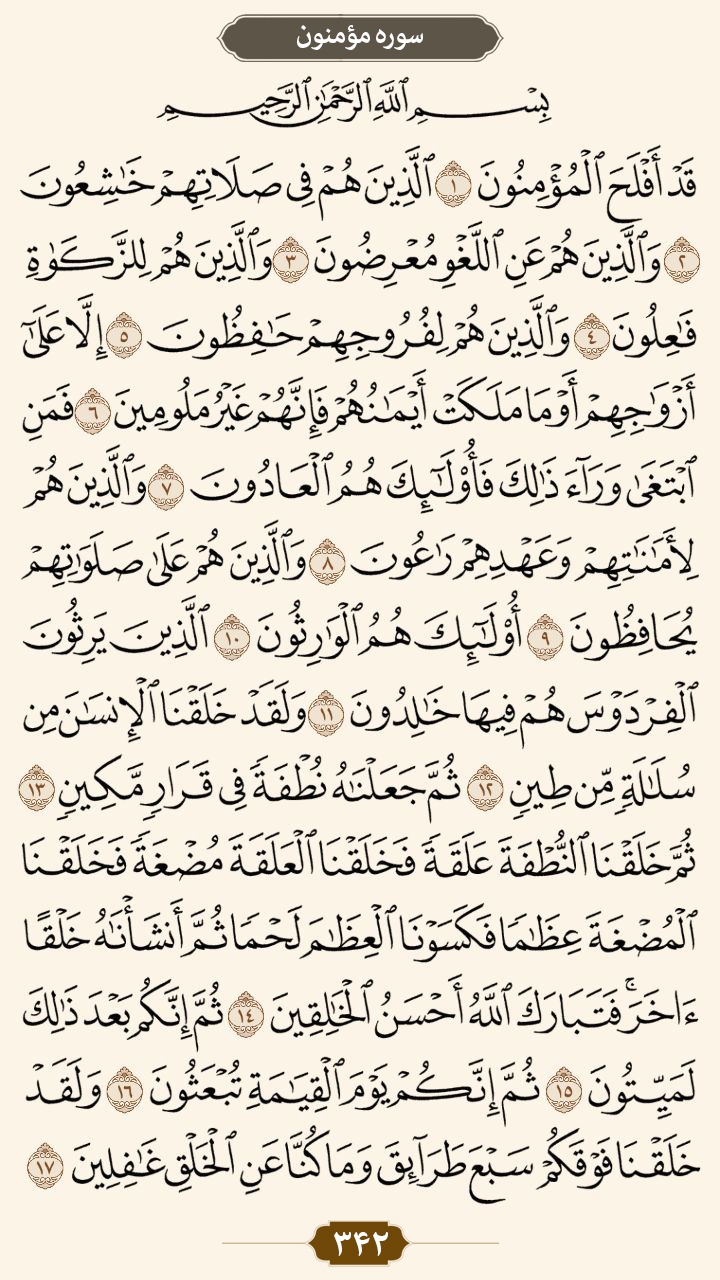 سوره مؤمنون
بِسْمِ ٱللَّهِ ٱلرَّحْمَٰنِ ٱلرَّحِيمِ
قَدْ أَفْلَحَ ٱلْمُؤْمِنُونَ ١ ٱلَّذِينَ هُمْ فِى صَلَاتِهِمْ خَٰشِعُونَ
٢ وَٱلَّذِينَ هُمْ عَنِ ٱللَّغْوِ مُعْرِضُونَ ٣ وَٱلَّذِينَ هُمْ لِلزَّكَوٰةِ
فَٰعِلُونَ ٤ وَٱلَّذِينَ هُمْ لِفُرُوجِهِمْ حَٰفِظُونَ ٥ إِلَّا عَلَىٰٓ
أَزْوَٰجِهِمْ أَوْ مَا مَلَكَتْ أَيْمَٰنُهُمْ فَإِنَّهُمْ غَيْرُ مَلُومِينَ ٦ فَمَنِ
ٱبْتَغَىٰ وَرَآءَ ذَٰلِكَ فَأُو۟لَٰٓئِكَ هُمُ ٱلْعَادُونَ ٧ وَٱلَّذِينَ هُمْ
لِأَمَٰنَٰتِهِمْ وَعَهْدِهِمْ رَٰعُونَ ٨ وَٱلَّذِينَ هُمْ عَلَىٰ صَلَوَٰتِهِمْ
يُحَافِظُونَ ٩ أُو۟لَٰٓئِكَ هُمُ ٱلْوَٰرِثُونَ ١٠ ٱلَّذِينَ يَرِثُونَ
ٱلْفِرْدَوْسَ هُمْ فِيهَا خَٰلِدُونَ ١١ وَلَقَدْ خَلَقْنَا ٱلْإِنسَٰنَ مِن
سُلَٰلَةٍ مِّن طِينٍ ١٢ ثُمَّ جَعَلْنَٰهُ نُطْفَةً فِى قَرَارٍ مَّكِينٍ ١٣
ثُمَّ خَلَقْنَا ٱلنُّطْفَةَ عَلَقَةً فَخَلَقْنَا ٱلْعَلَقَةَ مُضْغَةً فَخَلَقْنَا
ٱلْمُضْغَةَ عِظَٰمًا فَكَسَوْنَا ٱلْعِظَٰمَ لَحْمًا ثُمَّ أَنشَأْنَٰهُ خَلْقًا
ءَاخَرَ ۚ فَتَبَارَكَ ٱللَّهُ أَحْسَنُ ٱلْخَٰلِقِينَ ١٤ ثُمَّ إِنَّكُم بَعْدَ ذَٰلِكَ
لَمَيِّتُونَ ١٥ ثُمَّ إِنَّكُمْ يَوْمَ ٱلْقِيَٰمَةِ تُبْعَثُونَ ١٦ وَلَقَدْ
خَلَقْنَا فَوْقَكُمْ سَبْعَ طَرَآئِقَ وَمَا كُنَّا عَنِ ٱلْخَلْقِ غَٰفِلِينَ ١٧
۳۴۲